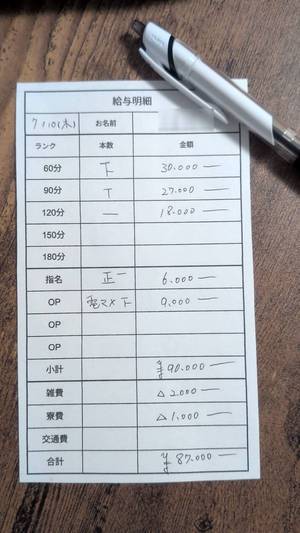 給与明細
7/10(木) お名前
ランク 本数 金額
60分 下 30.000
90分 T 27.000
120分 一 18.000
150分
180分
指名 正一 6.000
OP 電マ×下 9.000
OP
OP
小計 ¥90.000
雑費 △2.000
寮費 △1.000
交通費
合計 ¥87.000